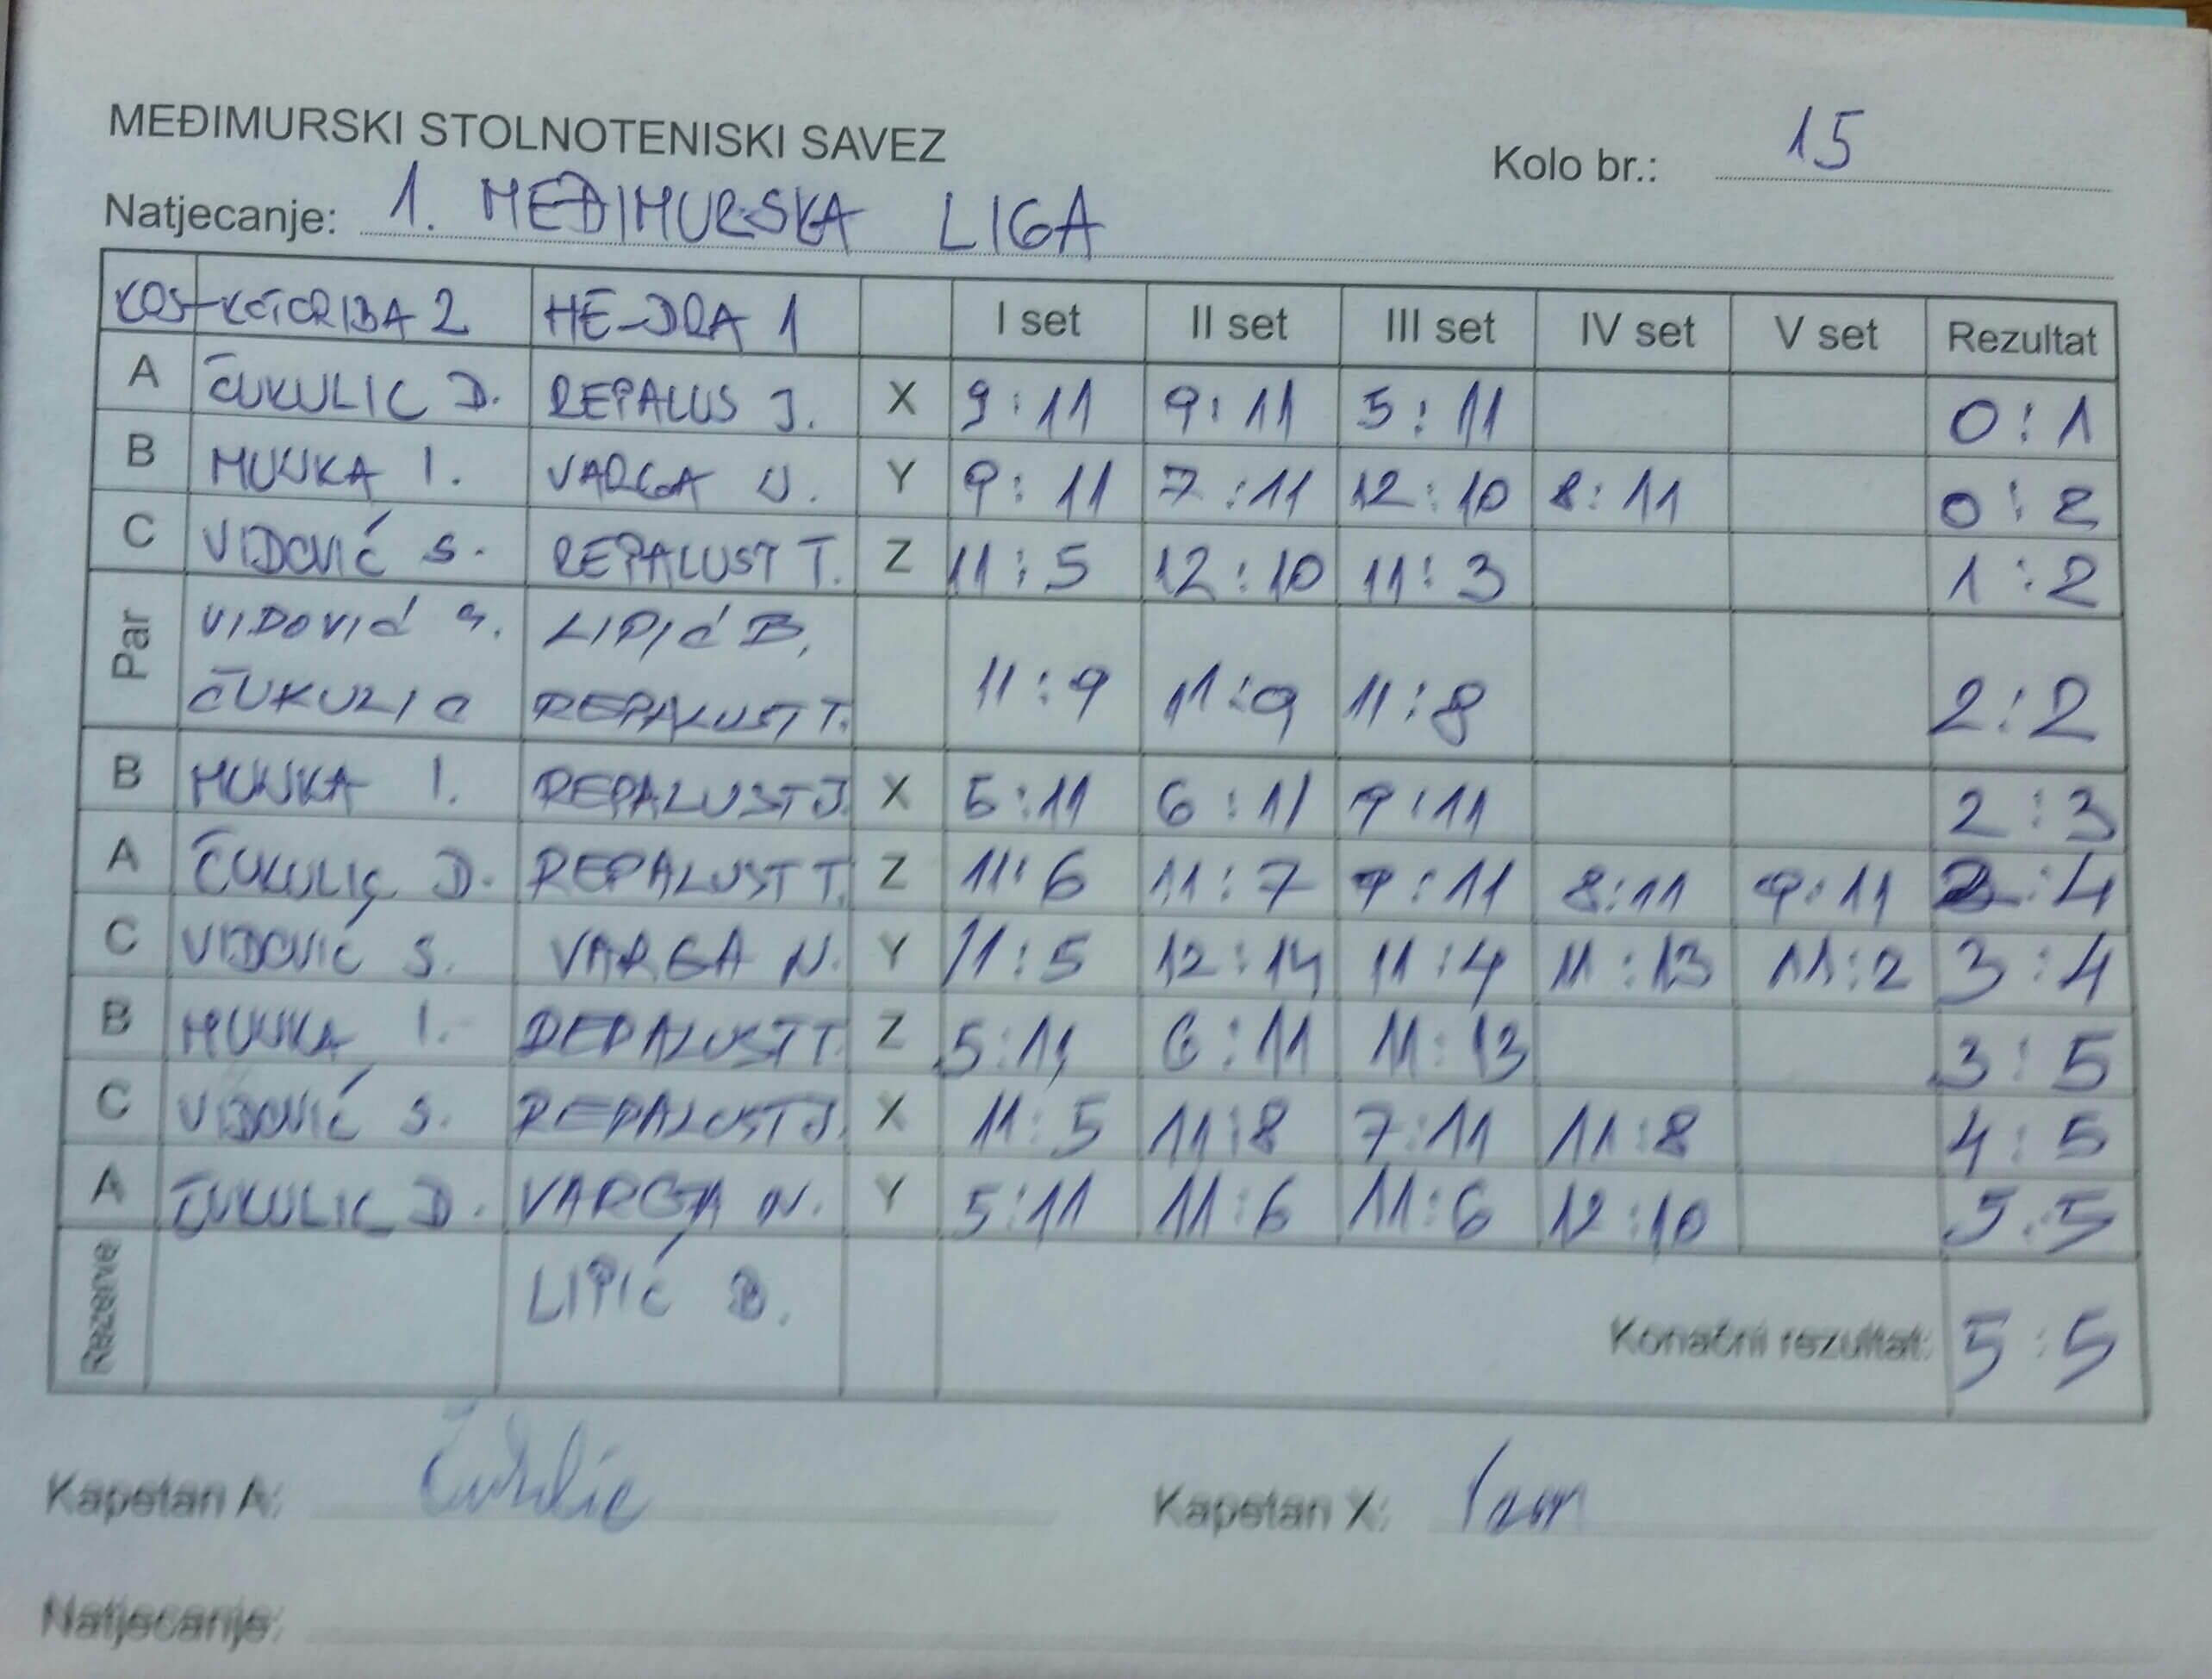 MEĐIMURSKI STOLNOTENISKI SAVEZ
Kolo br.: 15
Natjecanje: 1. MEĐIMURSKA LIGA
KOTORIBA 2 HE-DRA 1 I set II set III set IV set V set Rezultat
A ČUKULIC D. REPALUS J. X 9:11 9:11 5:11 0:1
B MUNKA I. VARGA N. Y 9:11 7:11 12:10 8:11 0:2
C VIDOVIĆ S. REPALUST T. Z 11:5 12:10 11:3 1:2
Par VIDOVIĆ S. LIPIĆ B. 11:9 11:9 11:8 2:2
ČUKULIC REPALUST T.
B MUNKA I. REPALUST J. X 5:11 6:11 9:11 2:3
A ČUKULIC D. REPALUST T. Z 11:6 11:7 9:11 8:11 9:11 2:4
C VIDOVIĆ S. VARGA N. Y 11:5 12:14 11:4 11:13 11:2 3:4
B MUNKA I. REPALUST T. Z 5:11 6:11 11:13 3:5
C VIDOVIĆ S. REPALUST J. X 11:5 11:8 7:11 11:8 4:5
A ČUKULIC D. VARGA N. Y 5:11 11:6 11:6 12:10 5:5
Rezerve LIPIĆ B. Konačni rezultat: 5:5
Kapetan A: Čukulic Kapetan X:
Natjecanje: